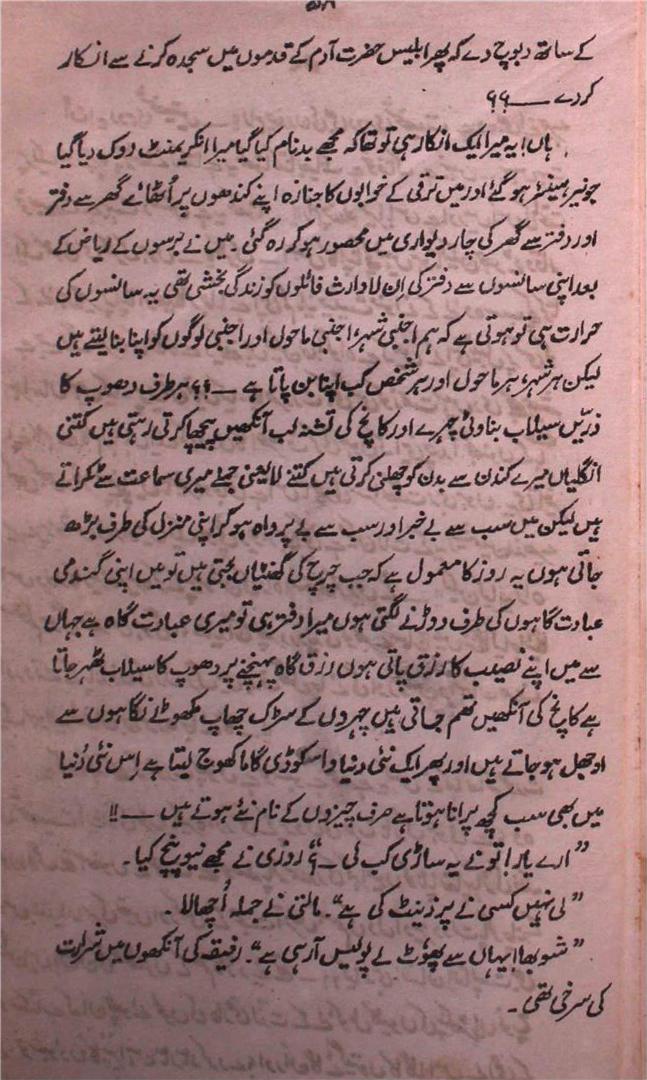 کے ساتھ دبوچ دے کہ پھر ابلیس حضرت آدم کے قدموں میں سجدہ کرنے سے انکار
کر دے ــــ ؟؟
ہاں! یہ میرا ایک انکار ہی تو تھا کہ مجھے بدنام کیا گیا میرا انکریمنٹ روک دیا گیا
جونیر سینئر ہو گئے اور میں ترقی کے خوابوں کا جنازہ اپنے کندھوں پر اُٹھائے گھر سے دفتر
اور دفتر سے گھر کی چار دیواری میں محصور ہو کر رہ گئی۔ میں نے برسوں کے ریاض کے
بعد اپنی سانسوں سے دفتر کی اِن لاوارث فائلوں کو زندگی بخشی تھی یہ سانسوں کی
حرارت ہی تو ہوتی ہے کہ ہم اجنبی شہر، اجنبی ماحول اور اجنبی لوگوں کو اپنا بنا لیتے ہیں
لیکن ہر شہر، ہر ماحول اور ہر شخص کب اپنا بن پاتا ہے ــ ؟؟ ہر طرف دھوپ کا
زرّیں سیلاب بناوٹی چہرے اور کانچ کی تشنہ لب آنکھیں پیچھا کرتی رہتی ہیں کتنی
انگلیاں میرے کندن سے بدن کو چھلنی کرتی ہیں کتنے لایعنی جملے میری سماعت سے ٹکراتے
ہیں لیکن میں سب سے بے خبر اور سب سے بے پرواہ ہو کر اپنی منزل کی طرف بڑھ
جاتی ہوں یہ روز کا معمول ہے کہ جب چرچ کی گھنٹیاں بجتی ہیں تو میں اپنی گندمی
عبادت گاہوں کی طرف دوڑنے لگتی ہوں میرا دفتر ہی تو میری عبادت گاہ ہے جہاں
سے میں اپنے نصیب کا رزق پاتی ہوں رزق گاہ پہنچنے پر دھوپ کا سیلاب ٹھہر جاتا
ہے کانچ کی آنکھیں تھم جاتی ہیں چہروں کے سڑک چھاپ مکھوٹے نگاہوں سے
اوجھل ہو جاتے ہیں اور پھر ایک نئی دنیا واسکوڈی گاما کھوج لیتا ہے اِس نئی دُنیا
میں بھی سب کچھ پرانا ہوتا ہے صرف چیزوں کے نام نئے ہوتے ہیں ــــ !!
”ارے یار! تو نے یہ ساڑی کب لی ــ ؟“ روزی نے مجھے نیو پنچ کیا۔
”لی نہیں کسی نے پرزینٹ کی ہے“۔ مالتی نے جملہ اُچھالا۔
”شوبھا! یہاں سے پھوٹ لے پولیس آ رہی ہے“۔ رفیقہ کی آنکھوں میں شرارت
کی سرخی تھی۔